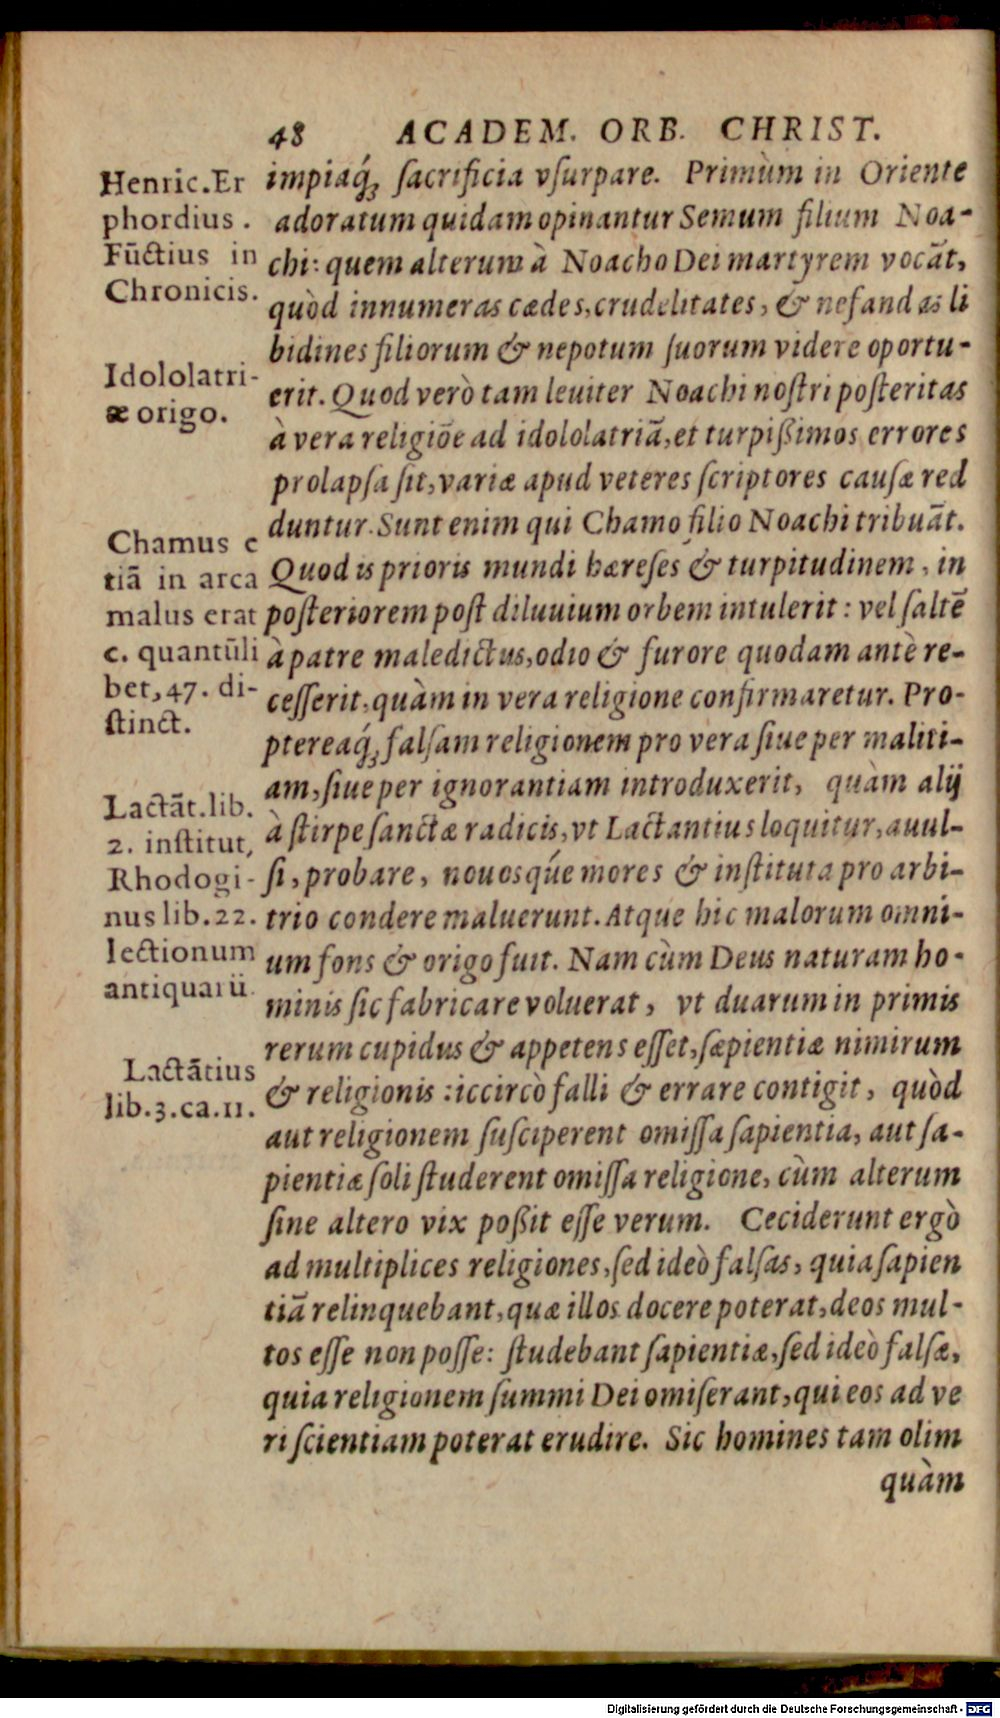 48 ACADEM. ORB. CHRIST.
Henric.Er
phordius.
Fūctius in
Chronicis.
Idololatri-
æ origo.
Chamus e
tiā in arca
malus erat
c. quantūli
bet, 47. di-
ſtinct.
Lactāt.lib.
2. inſtitut,
Rhodogi-
nus lib.22.
lectionum
antiquarū
Lactātius
lib.3.ca.11.
impiaq́; ſacrificia vſurpare. Primùm in Oriente
adoratum quidam opinantur Semum filium Noa-
chi: quem alterum à Noacho Dei martyrem vocāt,
quòd innumeras cædes, crudelitates, & nefandas li
bidines filiorum & nepotum ſuorum videre oportu-
erit. Quod verò tam leuiter Noachi noſtri poſteritas
à vera religiōe ad idololatriā, et turpißimos errores
prolapſa ſit, variæ apud veteres ſcriptores cauſæ red
duntur. Sunt enim qui Chamo filio Noachi tribuāt.
Quod is prioris mundi hæreſes & turpitudinem, in
poſteriorem poſt diluuium orbem intulerit: vel ſaltē
à patre maledictus, odio & furore quodam antè re-
ceſſerit, quàm in vera religione confirmaretur. Pro-
ptereaq́; falſam religionem pro vera ſiue per maliti-
am, ſiue per ignorantiam introduxerit, quàm alij
à ſtirpe ſanctæ radicis, vt Lactantius loquitur, auul-
ſi, probare, nouosq́ue mores & inſtituta pro arbi-
trio condere maluerunt. Atque hic malorum omni-
um fons & origo fuit. Nam cùm Deus naturam ho-
minis ſic fabricare voluerat, vt duarum in primis
rerum cupidus & appetens eſſet, ſæpientiæ nimirum
& religionis: iccircò falli & errare contigit, quòd
aut religionem ſuſciperent omiſſa ſapientia, aut ſa-
pientiæ ſoli ſtuderent omiſſa religione, cùm alterum
ſine altero vix poßit eſſe verum. Ceciderunt ergò
ad multiplices religiones, ſed ideò falſas, quia ſapien
tiā relinquebant, quæ illos docere poterat, deos mul-
tos eſſe non poſſe: ſtudebant ſapientiæ, ſed ideò falſæ,
quia religionem ſummi Dei omiſerant, qui eos ad ve
ri ſcientiam poterat erudire. Sic homines tam olim
quàm
Digitalisierung gefördert durch die Deutsche Forschungsgemeinschaft - DFG